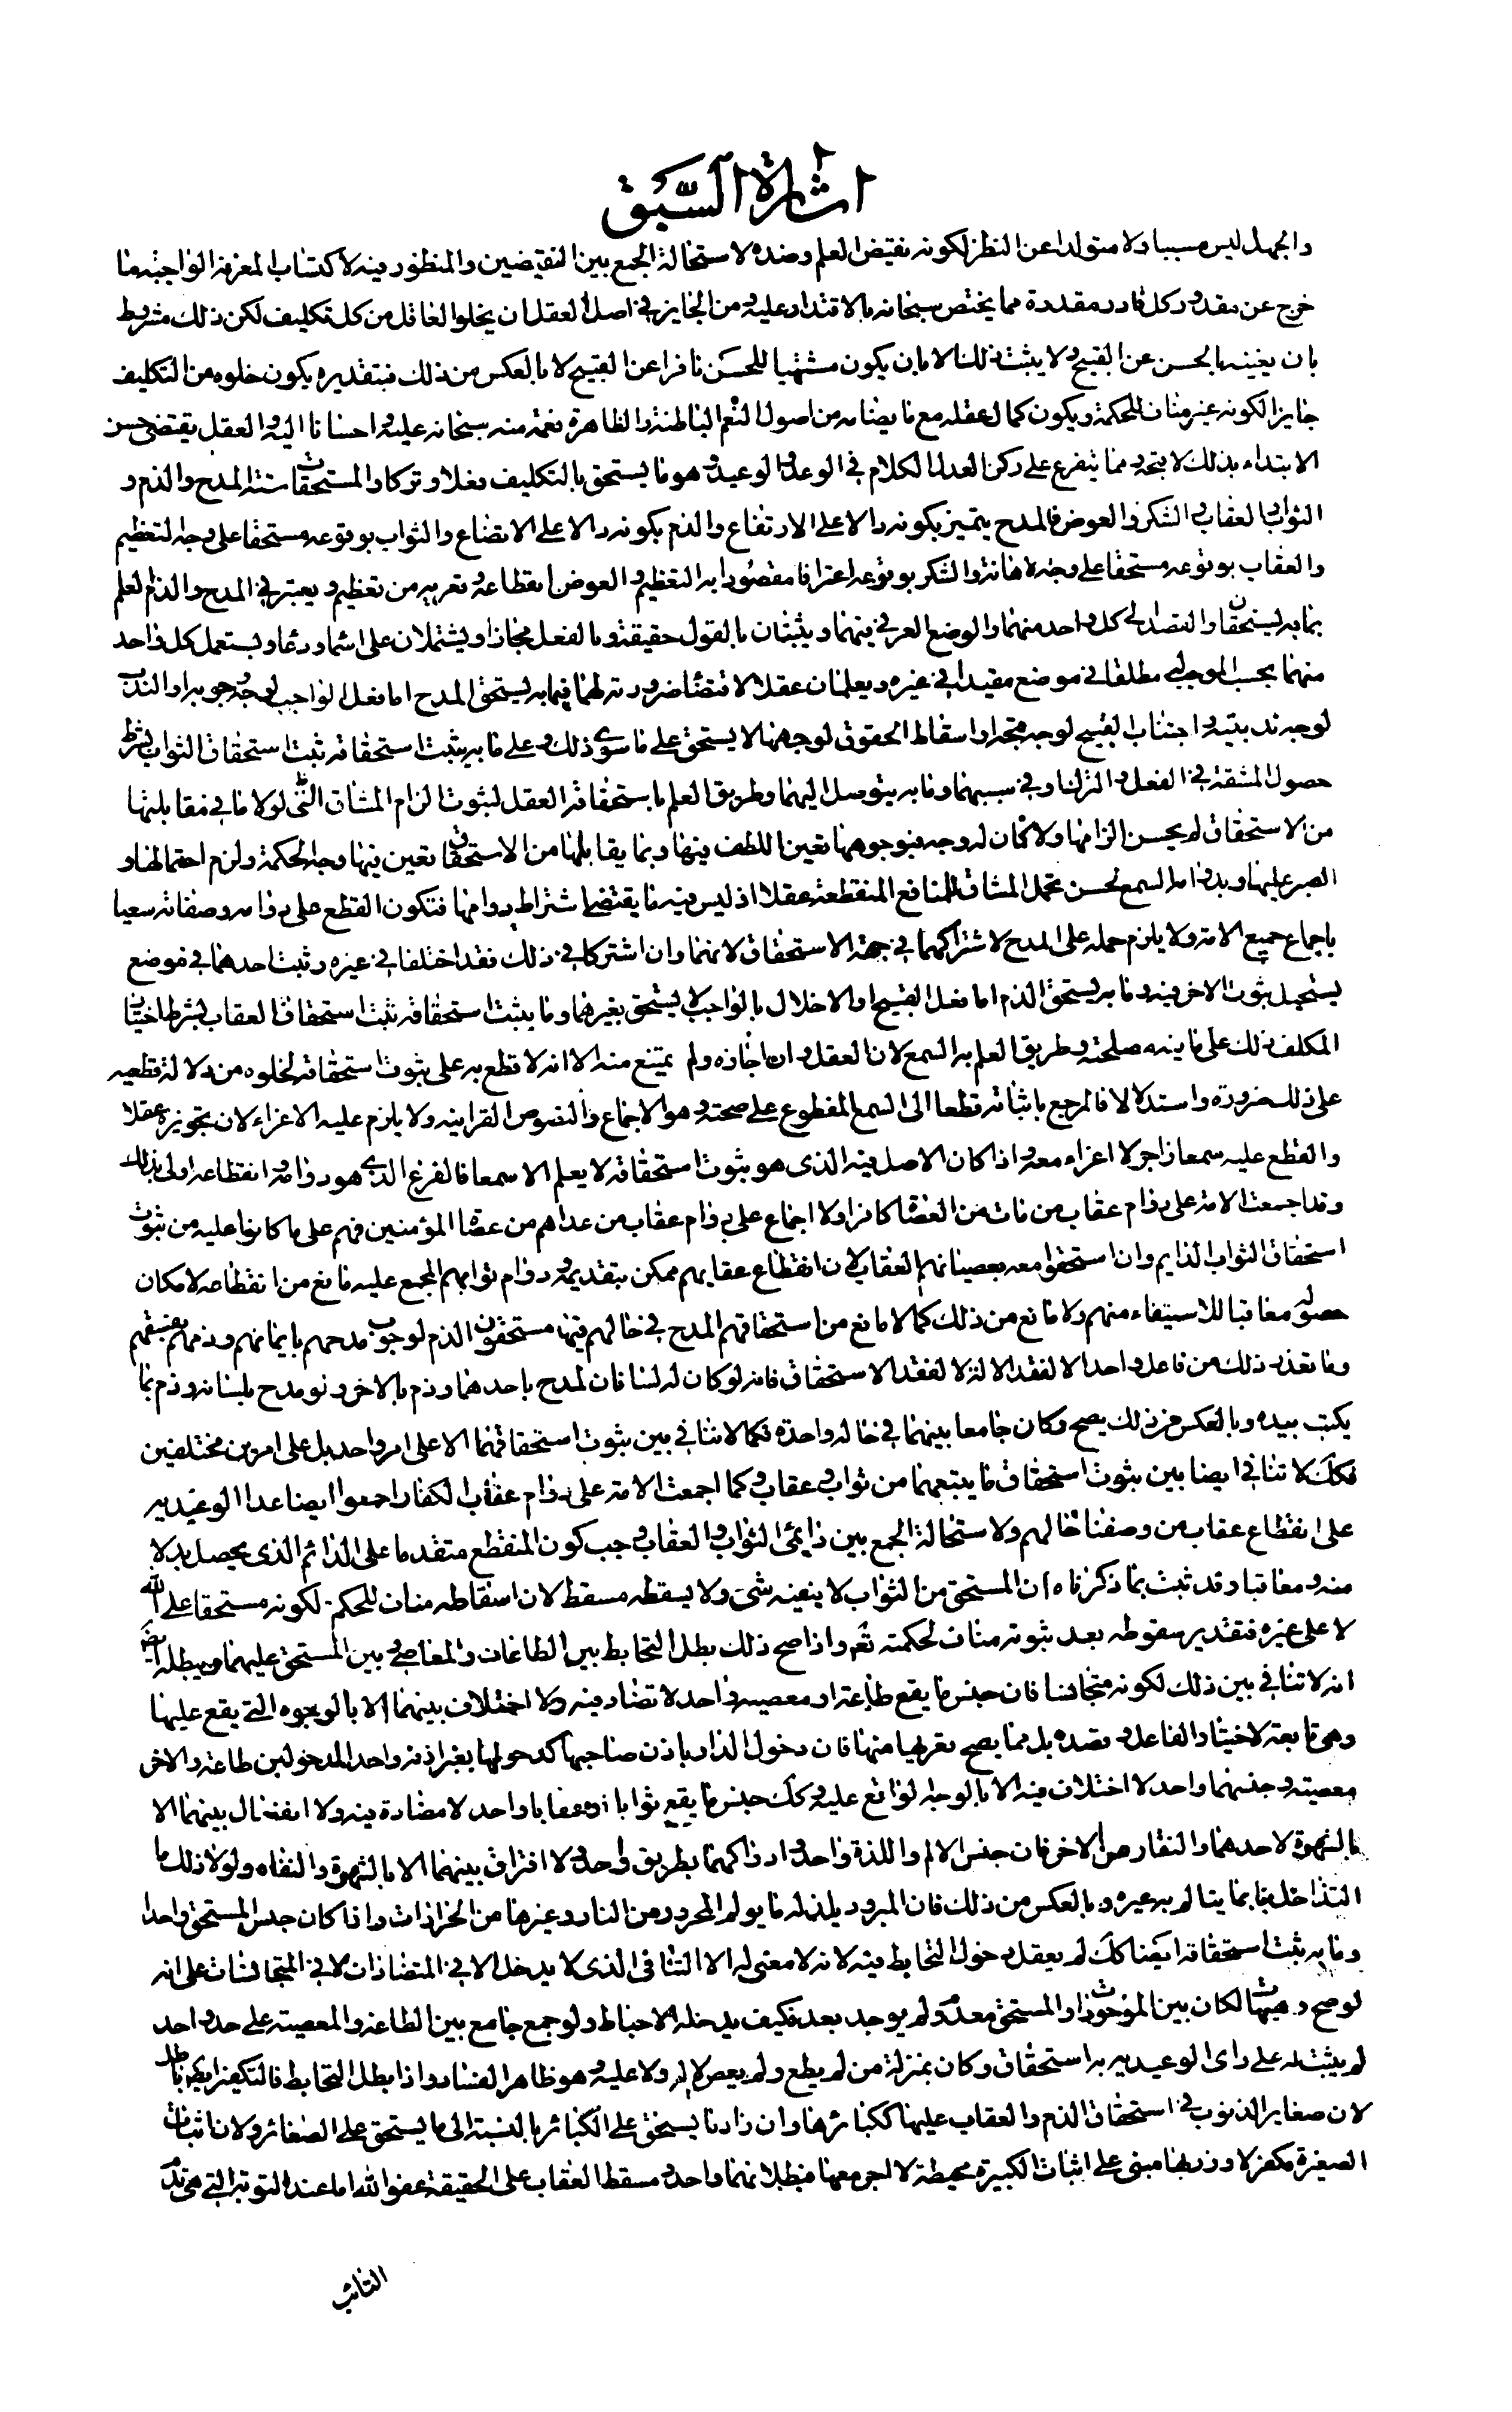 اشارة السبق
والجهل ليس مسببا ولا متولدا عن النظر لكونه نقيض العلم وضده لاستحالة الجمع بين النقيضين والمنظور فيه لاكتساب المعرفة الواجبة ما
خرج عن مقدور كل قادر بقدرة مما يختص سبحانه بالاقتدار عليه ومن الجايز في اصل العقل ان يخلو العاقل من كل تكليف لكن ذلك مشروط
بان يغنيه بالحسن عن القبيح ولا يثبت ذلك الا بان يكون مشتهيا للحسن نافرا عن القبيح لا بالعكس من ذلك فبتقديره يكون خلوه من التكليف
جايزا لكونه غير مناف للحكمة ويكون كمال عقله مع ما يضامه من اصول النعم الباطنة والظاهرة نعمة منه سبحانه عليه واحسانا اليه والعقل يقتضى حسن
الابتداء بذلك لا بتجرد مما يتفرع على ركن العدل الكلام في الوعد والوعيد وهو ما يستحق بالتكليف فعلا وتركا والمستحقات ستة المدح والذم و
الثواب والعقاب والشكر والعوض فالمدح يتميز بكونه دالا على الارتفاع والذم بكونه دالا على الاتضاع والثواب بوقوعه مستحقا على وجه التعظيم
والعقاب بوقوعه مستحقا على وجه الاهانة والشكر بوقوعه اعترافا مقصودا به التعظيم والعوض انقطاعه وتعريه من تعظيم ويعتبر في المدح والذم العلم
بما به يستحقان والقصد الى كل واحد منهما والوضع العرفي فيهما ويثبتان بالقول حقيقة وبالفعل مجازا ويشتملان على اسماء ودعاء ويستعمل كل واحد
منهما بحسب الموجب له مطلقا في موضع مقيدا في غيره ويعلمان عقلا لاقتضاء ضرورته لهما فما به يستحق المدح اما فعل الواجب لوجه وجوبه او الندب
لوجه ندبيته واجتناب القبيح لوجه قبحه او اسقاط الحقوق لوجهها لا يستحق على ما سوى ذلك وعلى ما به يثبت استحقاقه ثبت استحقاق الثواب بشرط
حصول المشقة في الفعل والترك او في سببهما وما به يتوصل اليهما وطريق العلم باستحقاقه العقل لثبوت الزام المشاق التى لولا ما في مقابلتها
من الاستحقاق لم يحسن الزامها ولا كان له وجه فبوجوهها تعين اللطف فيها وبما يقابلها من الاستحقاق تعين فيها وجه الحكمة ولزم احتمالها و
الصبر عليها وبدوامه السمع لحسن تحمل المشاق للمنافع المنقطعة عقلا اذ ليس فيه ما يقتضى اشتراط دوامها فتكون القطع على دوامه وصفاته سمعيا
باجماع جميع الامة ولا يلزم حمله على المدح لاشتراكهما في جهة الاستحقاق لانهما وان اشتركا في ذلك فقد اختلفا في غيره وثبت احدهما في موضع
يستحيل ثبوت الاخر فيه وما به يستحق الذم اما فعل القبيح او الاخلال بالواجب لا يستحق بغيرهما وما يثبت استحقاقه ثبت استحقاق العقاب بشرط اختيار
المكلف ذلك على ما فيه مصلحته وطريق العلم به السمع لان العقل وان اجازه ولم يمتنع منه الا انه لا قطع به على ثبوت استحقاقه لخلوه من دلالة قطعيه
على ذلك ضرورة واستدلالا فالمرجع باثباته قطعا الى السمع المقطوع على صحته وهو الاجماع والنصوص القرانيه ولا يلزم عليه الاغراء لان تجويزه عقلا
والقطع عليه سمعا زاجر لا اغراء معه واذا كان الاصل فيه الذى هو ثبوت استحقاقه لا يعلم الا سمعا فالفرع الذى هو دوامه وانقطاعه اولى بذلك
وقد اجمعت الامة على دوام عقاب من مات من العصاة كافرا ولا اجماع على دوام عقاب من عداهم من عصاة المؤمنين فهم على ما كانوا عليه من ثبوت
استحقاق الثواب الدايم وان استحقوا معه بعصيانهم العقاب لان انقطاع عقابهم ممكن بتقديمه ودوام ثوابهم المجمع عليه مانع من انقطاعه لامكان
حصوله معاقبا للاستيفاء منهم ولا مانع من ذلك كما لا مانع من استحقاقهم المدح في حالهم فيها مستحقون الذم لوجوب مدحهم بايمانهم وذمهم بفسقهم
وما تعذر ذلك من فاعل واحد الا لفقد الالة لا لفقد الاستحقاق فانه لو كان له لسانان لمدح باحدهما وذم بالاخر ونو مدح بلسانه وذم بما
يكتب بيده وبالعكس من ذلك يصح وكان جامعا بينهما في حالة واحدة فكما لا تنافي بين ثبوت استحقاقهما لا على امر واحد بل على امرين مختلفين
فكك لا تنافى ايضا بين ثبوت استحقاق ما يتبعهما من ثواب وعقاب وكما اجمعت الامة على دوام عقاب الكفار اجمعوا ايضا عدا الوعيديه
على انقطاع عقاب من وصفنا حالهم ولاستحالة الجمع بين دايمى الثواب والعقاب وجب كون المنقطع متقدما على الدائم الذى يحصل بدلا
منه ومعاقبا وقد ثبت بما ذكرناه ان المستحق من الثواب لا يغنيه شئ ولا يسقطه مسقط لان اسقاطه مناف للحكم لكونه مستحقا على الله
لا على غيره فتقدير سقوطه بعد ثبوته مناف لحكمته تعم واذا صح ذلك بطل التحابط بين الطاعات والمعاصى وبين المستحق عليهما ويبطله ايضا
انه لا تنافي بين ذلك لكونه متجانسا فان جنس ما يقع طاعة او معصيه واحد لا تضاد فيه ولا اختلاف بينهما الا بالوجوه التى يقع عليها
وهى تابعة لاختيار الفاعل وقصده بل مما يصح تعريها منها فان دخول الدار باذن صاحبها كدخولها بغير اذنه واحد المدخولين طاعة والاخر
معصيته وجنسهما واحد لا اختلاف فيه الا بالوجه الواقع عليه وكك جنس ما يقع ثوابا وعقابا واحد لا مضادة فيه ولا انفصال بينهما الا
بالشهوة لاحدهما والنفار من الاخر فان جنس الالم واللذة واحد وادراكهما بطريق واحد ولا افتراق بينهما الا بالشهوة والنفاه ولولا ذلك ما
التذ احدنا بما يتالم به غيره وبالعكس من ذلك فان المبرود يلذ له ما يولم المحرور من النار وغيرها من الحرارات واذا كان جنس المستحق واحدا
وما به ثبت استحقاقه ايضا كك لم يعقل دخول التحابط فيه لانه لا معنى له الا التنافى الذى لا يدخل الا في المتضادات لا في المتجانسات على انه
لوصح وهيهات لكان بين الموجودات او المستحق معدوم لم يوجد بعد فكيف يدخله الاحباط ولو جمع جامع بين الطاعة والمعصية على حد واحد
لم يثبت له على راى الوعيديه به استحقاق وكان بمنزلة من لم يطع ولم يعص لا له ولا عليه وهو ظاهر الفساد واذا بطل التحابط فالتكفير ايضا باطل
لان صغاير الذنوب في استحقاق الذم والعقاب عليها ككبائرها وان زاد ما يستحق على الكبائر بالنسبة الى ما يستحق على الصغائر ولان اثبات
الصغيرة مكفرة لا وزر لها مبنى على اثبات الكبيرة محيطة لا اجر معها فبطلانهما واحد ومسقط العقاب على الحقيقة عفو الله اما عند التوبة التى هى ندم
التائب